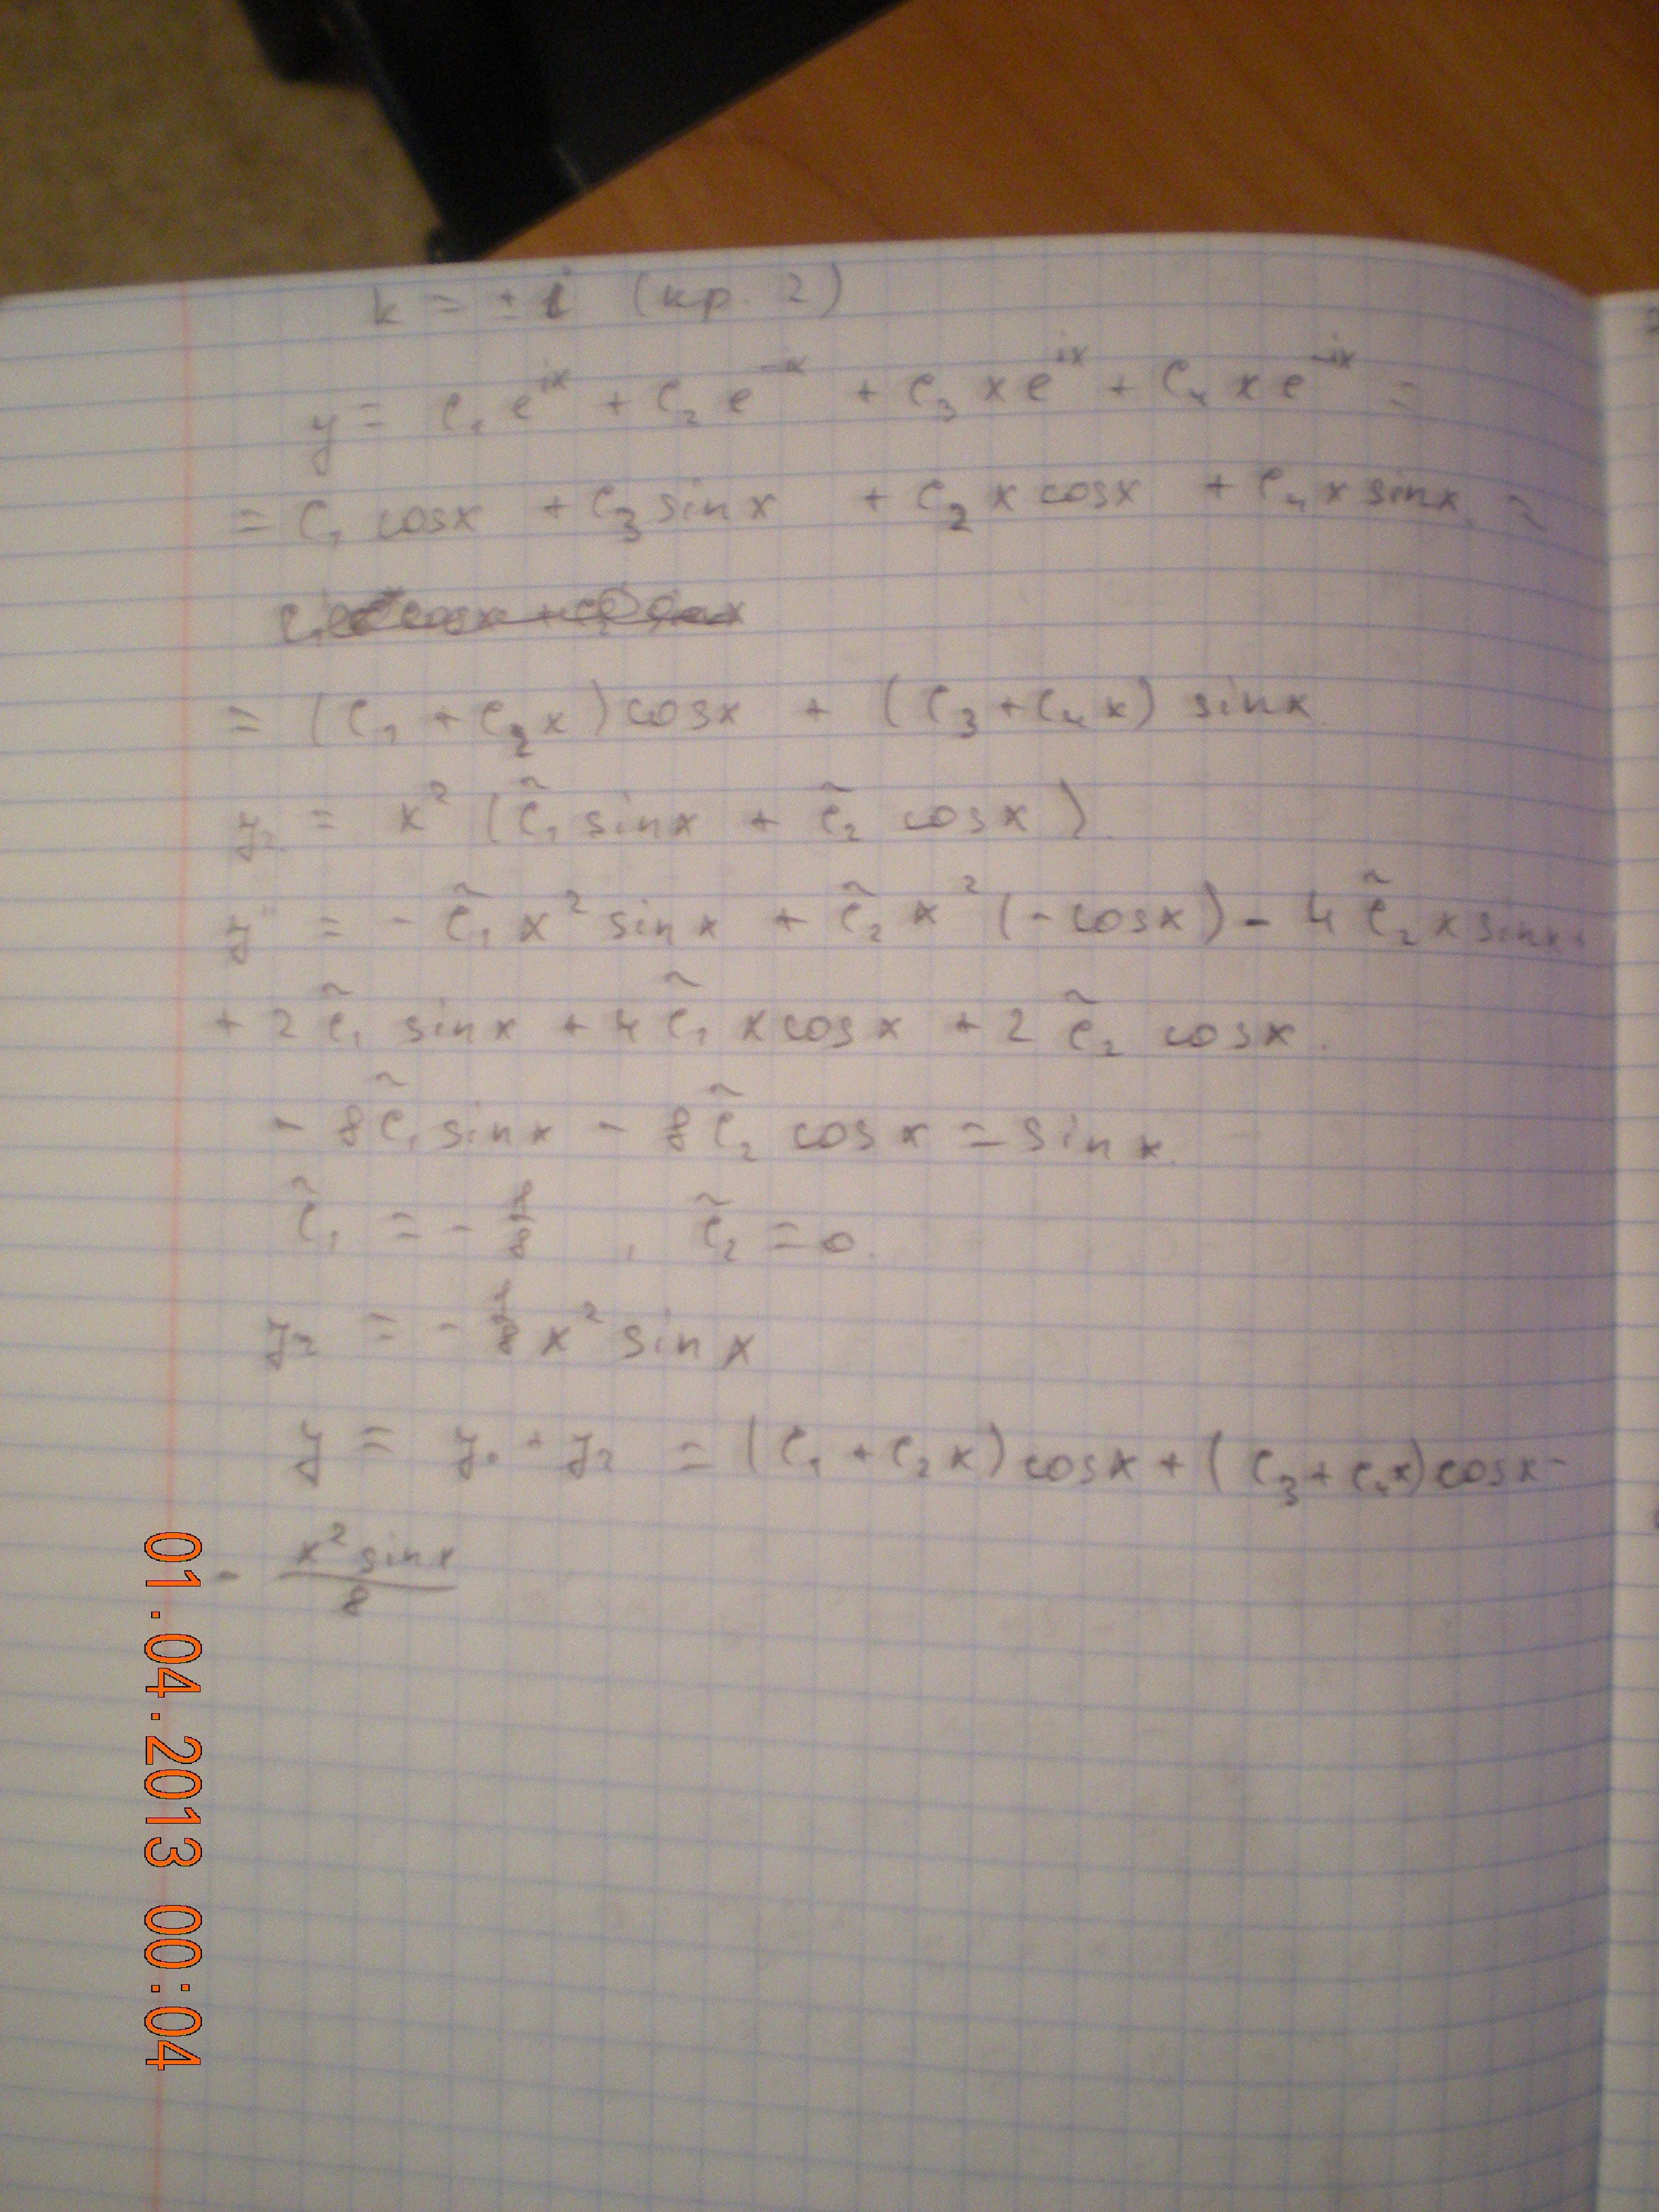 k = ± i (кр. 2)
y = C₁ e^{ix} + C₂ e^{-x} + C₃ x e^{ix} + C₄ x e^{-ix} =
= C₁ cosx + C₃ sinx + C₂ x cosx + C₄ x sinx. =
= (C₁ + C₂x) cosx + (C₃ + C₄x) sinx.
y₂ = x² (C̃₁ sinx + C̃₂ cosx).
y'' = - C̃₁ x² sinx + C̃₂ x² (-cosx) - 4 C̃₂ x sinx +
+ 2 C̃₁ sinx + 4 C̃₁ x cosx + 2 C̃₂ cosx.
- 8C̃₁ sinx - 8C̃₂ cosx = sinx.
C̃₁ = - 1/8 , C̃₂ = 0.
y₂ = - 1/8 x² sinx
y = y₀ + y₂ = (C₁ + C₂x) cosx + (C₃ + C₄x) cosx -
- x² sinx / 8
01.04.2013 00:04